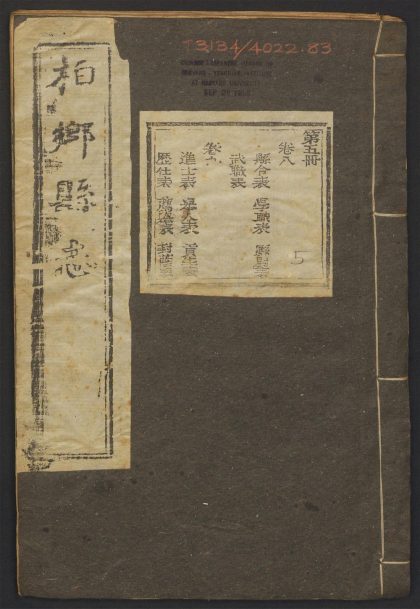 T3134/4022.83
CHINESE-JAPANESE LIBRARY OF
HARVARD-YENCHING INSTITUTE
AT HARVARD UNIVERSITY
柏鄉縣志
第五冊
卷八
縣令表
武職表
卷九
進士表
歷仕表
5